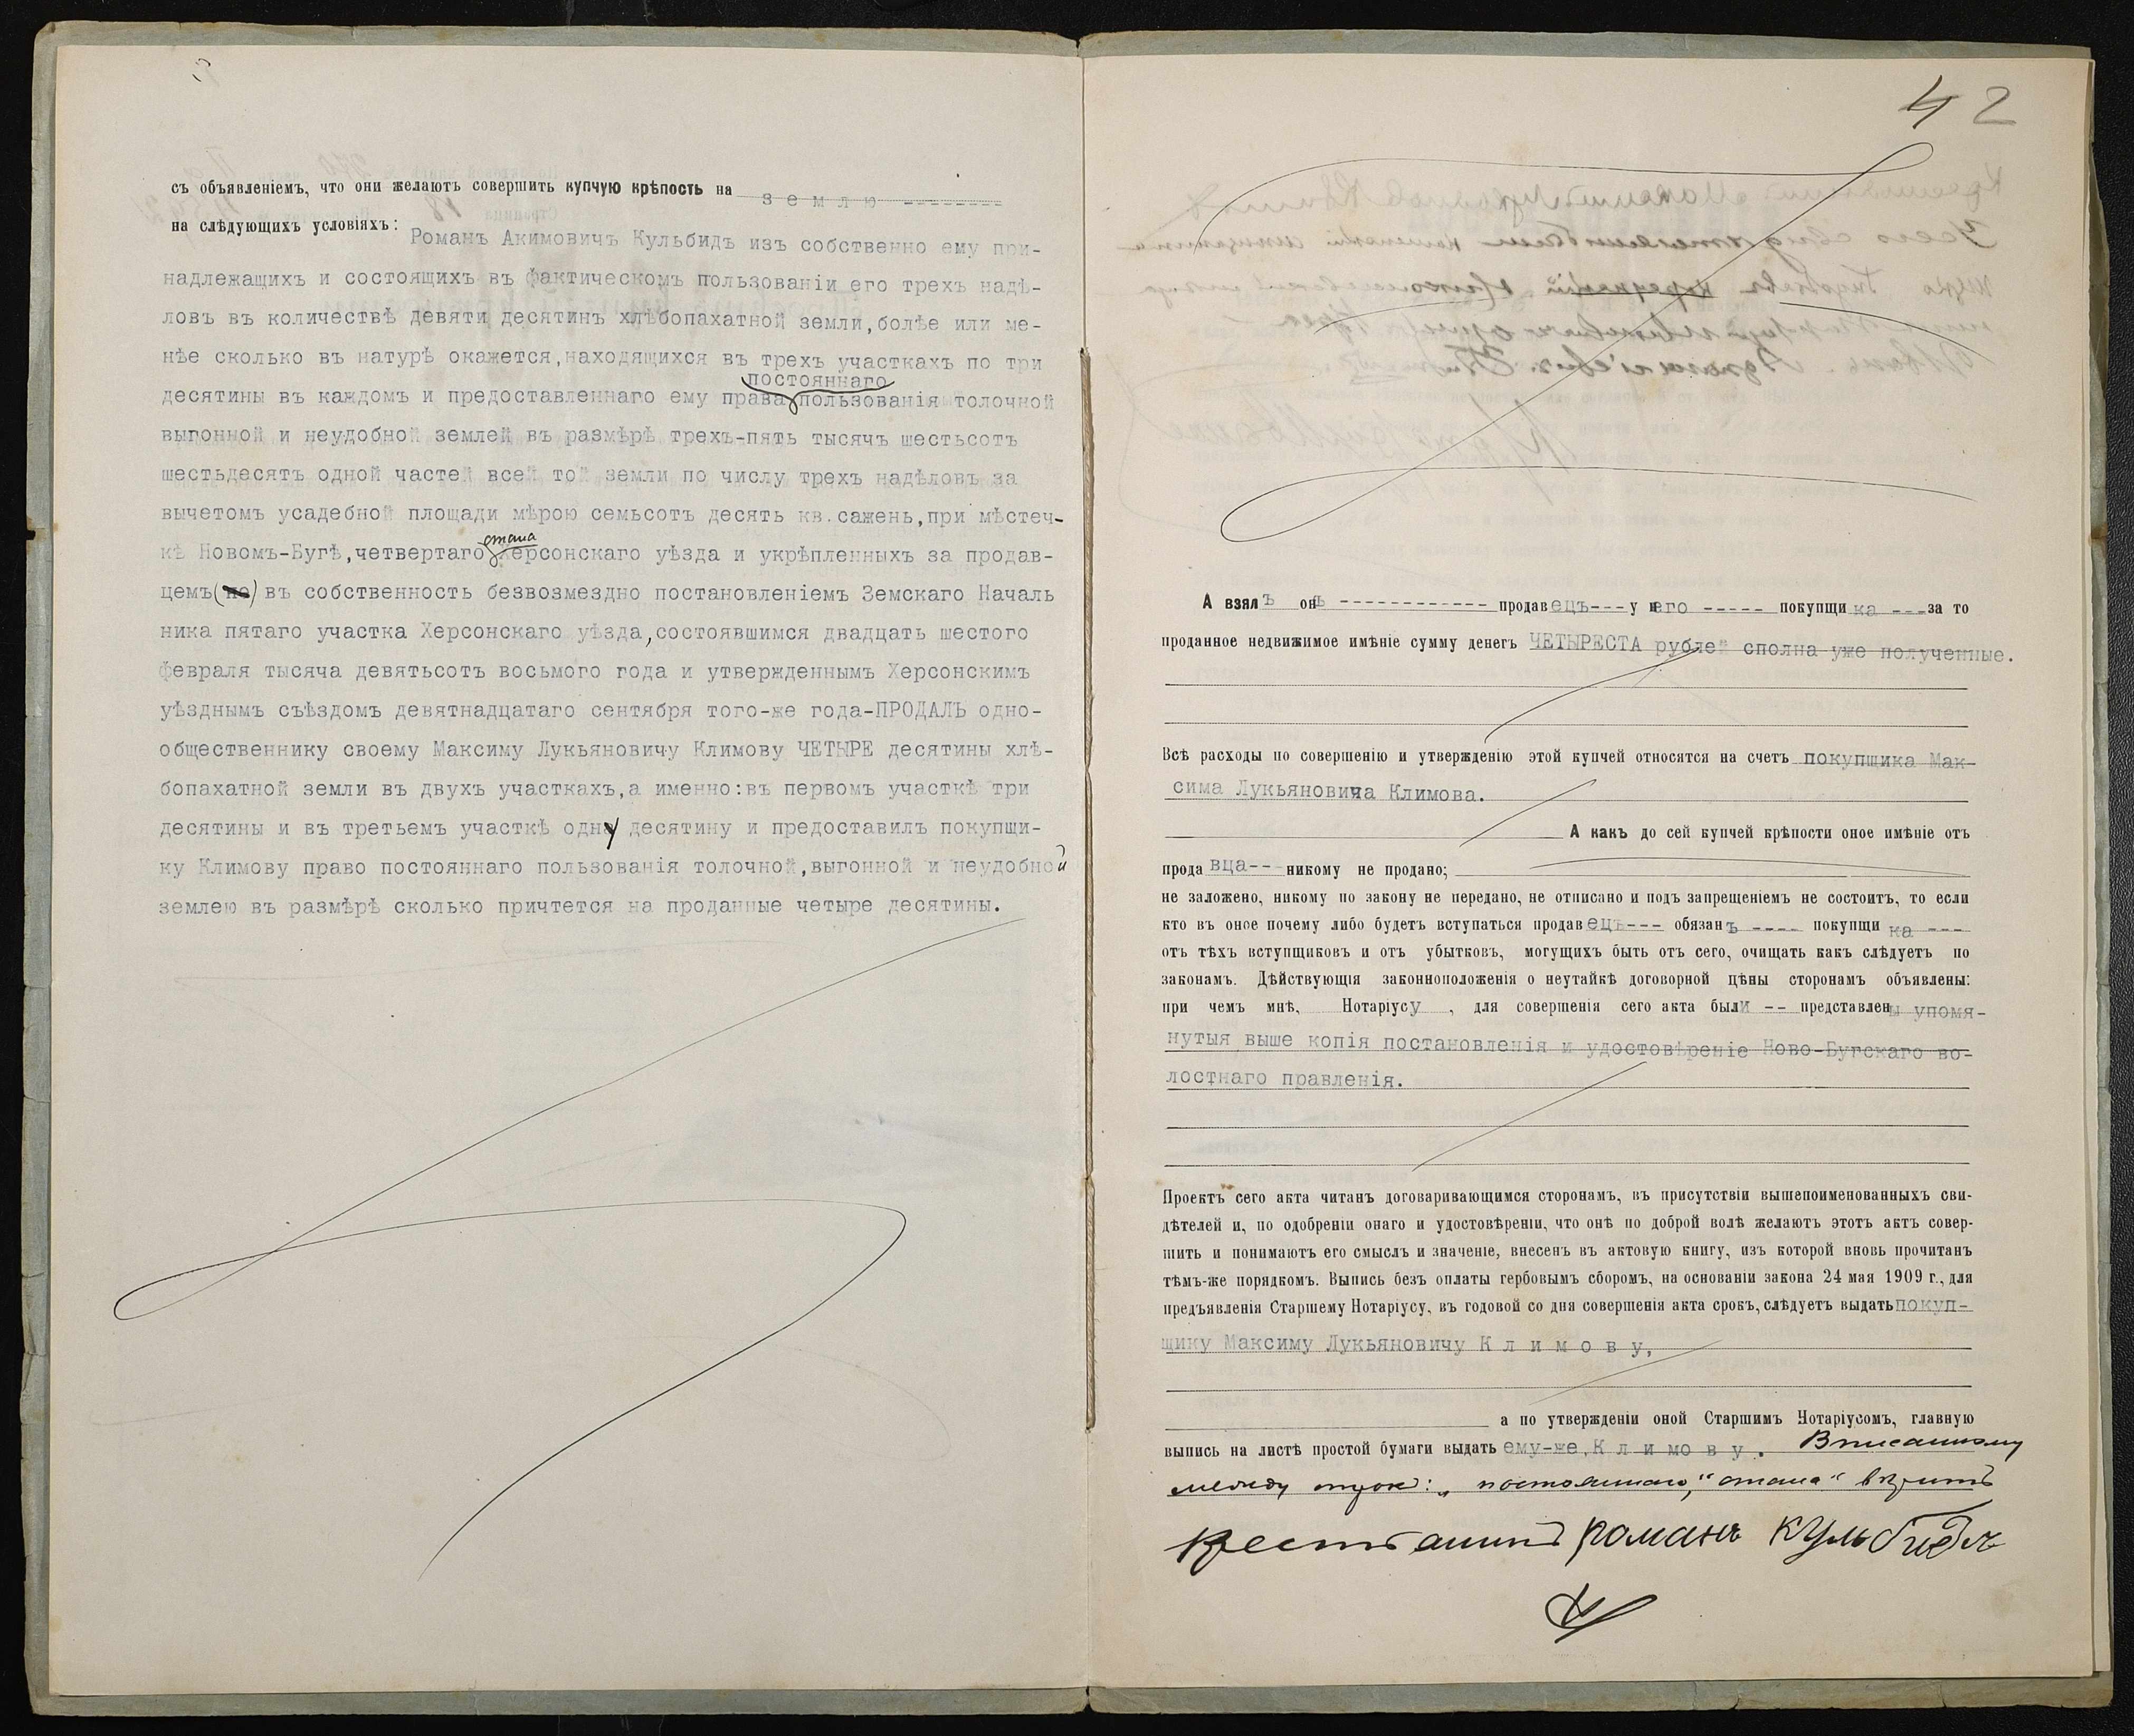 съ объявленіемъ, что они желаютъ совершить купчую крѣпость на землю --------
на слѣдующихъ условіяхъ: Романъ Акимовичъ Кульбидъ изъ собственно ему при-
надлежащихъ и состоящихъ въ фактическомъ пользованіи его трехъ надѣ-
ловъ въ количествѣ девяти десятинъ хлѣбопахатной земли,болѣе или ме-
нѣе сколько въ натурѣ окажется,находящихся въ трехъ участкахъ по три
постояннаго
десятины въ каждомъ и предоставленнаго ему права пользованія толочной
выгонной и неудобной землей въ размѣрѣ трехъ-пять тысячъ шестьсотъ
шестьдесятъ одной частей всей той земли по числу трехъ надѣловъ за
вычетомъ усадебной площади мѣрою семьсотъ десять кв.сажень,при мѣстеч-
стана
кѣ Новомъ-Бугѣ,четвертаго Херсонскаго уѣзда и укрѣпленныхъ за продав-
цемъ(не) въ собственность безвозмездно постановленіемъ Земскаго Началь
ника пятаго участка Херсонскаго уѣзда,состоявшимся двадцать шестого
февраля тысяча девятьсотъ восьмого года и утвержденнымъ Херсонскимъ
уѣзднымъ съѣздомъ девятнадцатаго сентября того-же года-ПРОДАЛЪ одно-
общественнику своему Максиму Лукьяновичу Климову ЧЕТЫРЕ десятины хлѣ-
бопахатной земли въ двухъ участкахъ,а именно:въ первомъ участкѣ три
десятины и въ третьемъ участкѣ одну десятину и предоставилъ покупщи-
ку Климову право постояннаго пользованія толочной,выгонной и неудобной
землею въ размѣрѣ сколько причтется на проданные четыре десятины.
42
А взялъ онъ ------------ продавецъ---у него ----- покупщика ---за то
проданное недвижимое имѣніе сумму денегъ ЧЕТЫРЕСТА рублей сполна уже полученные.
Всѣ расходы по совершенію и утвержденію этой купчей относятся на счетъ покупщика Мак-
сима Лукьяновича Климова.
А какъ до сей купчей крѣпости оное имѣніе отъ
продавца-- никому не продано;
не заложено, никому по закону не передано, не отписано и подъ запрещеніемъ не состоитъ, то если
кто въ оное почему либо будетъ вступаться продавецъ--- обязанъ ---- покупщика ---
отъ тѣхъ вступщиковъ и отъ убытковъ, могущихъ быть отъ сего, очищать какъ слѣдуетъ по
законамъ. Дѣйствующія законноположенія о неутайкѣ договорной цѣны сторонамъ объявлены:
при чемъ мнѣ, Нотаріусу , для совершенія сего акта были -- представлены упомя-
нутыя выше копія постановленія и удостовѣреніе Ново-Бугскаго во-
лостнаго правленія.
Проектъ сего акта читанъ договаривающимся сторонамъ, въ присутствіи вышепоименованныхъ сви-
дѣтелей и, по одобреніи онаго и удостовѣреніи, что онѣ по доброй волѣ желаютъ этотъ актъ совер-
шить и понимаютъ его смыслъ и значеніе, внесенъ въ актовую книгу, изъ которой вновь прочитанъ
тѣмъ-же порядкомъ. Выпись безъ оплаты гербовымъ сборомъ, на основаніи закона 24 мая 1909 г., для
предъявленія Старшему Нотаріусу, въ годовой со дня совершенія акта срокъ, слѣдуетъ выдать покуп-
щику Максиму Лукьяновичу Климову,
а по утвержденіи оной Старшимъ Нотаріусомъ, главную
выпись на листѣ простой бумаги выдать ему-же,Климову. Вписанному
между строк: „постояннаго," „стана" вѣрить
Крестьянинъ романъ Кульбидъ